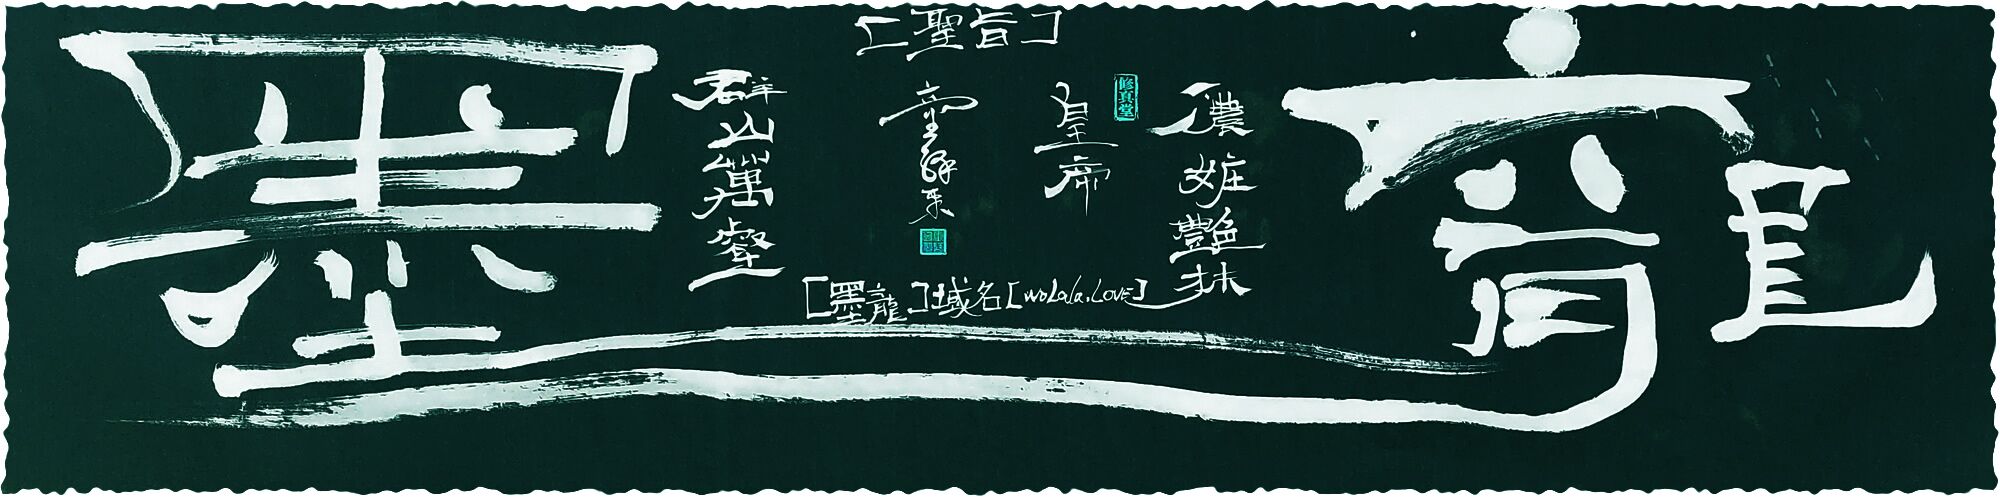 [聖旨]
墨龍
濃妝艷抹
皇帝
修真堂
群山萬壑
[墨龍]域名[woLaLa.LOVE]